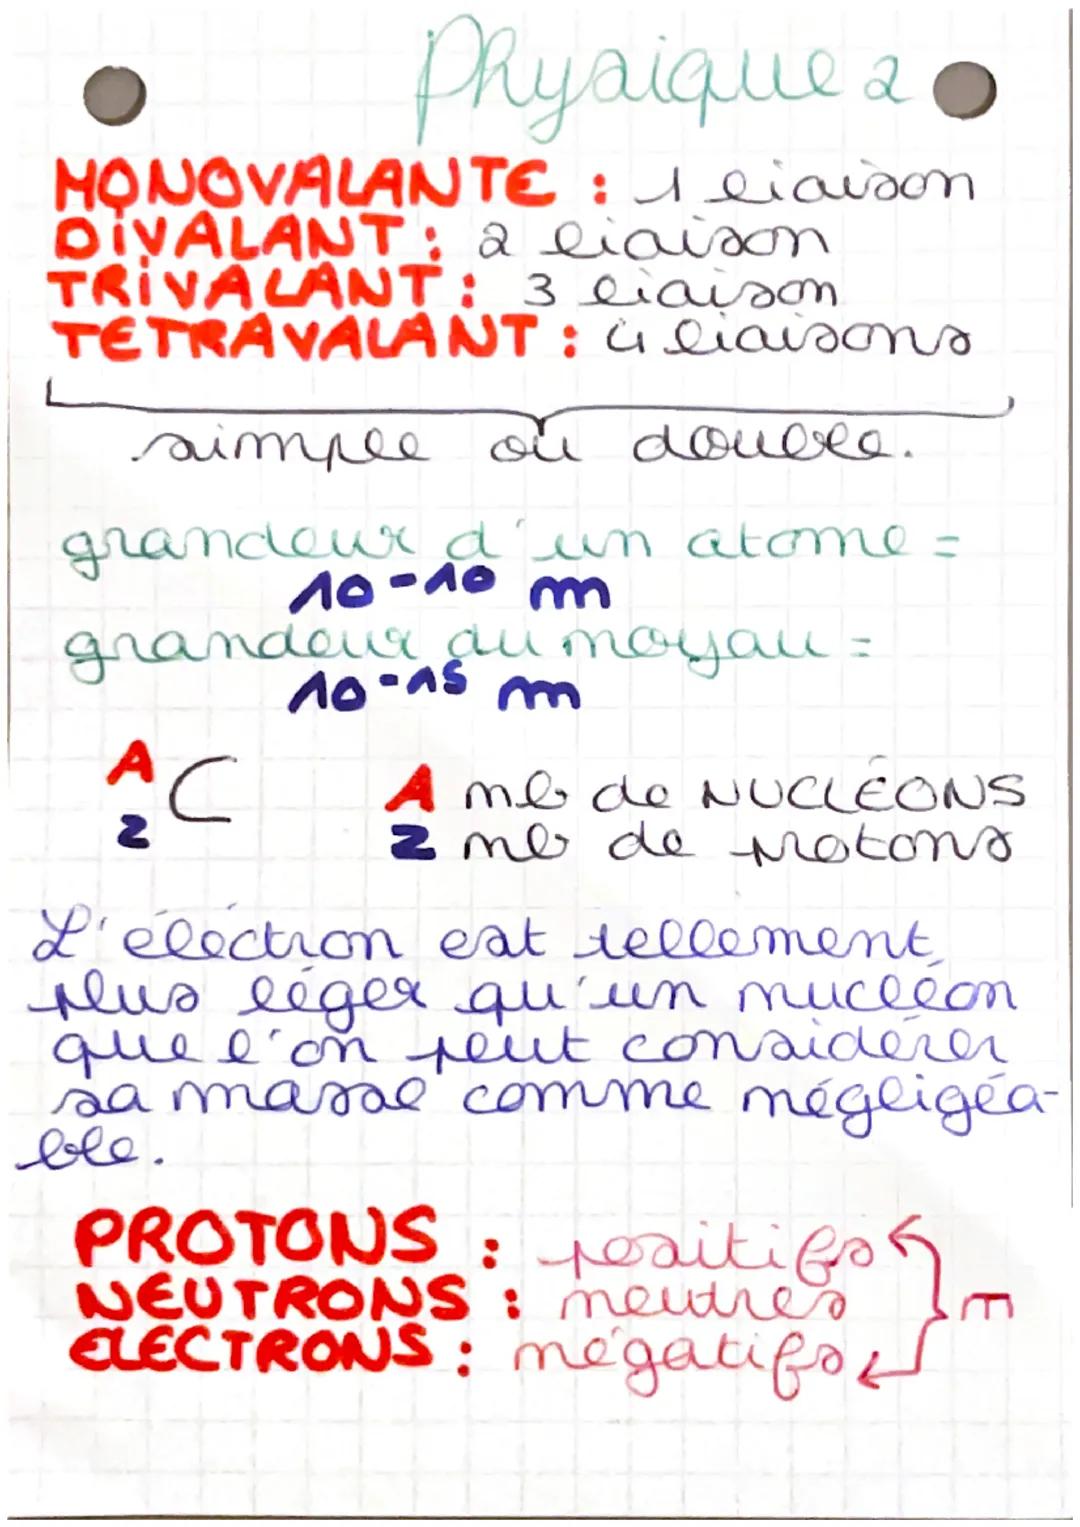 Physique 2
MONOVALANTE : 1 liaison
DIVALANT : 2 liaison
TRIVALANT : 3 liaison
TETRAVALANT : 4 liaisons
simple ou double.
grandeur d'un atome =
10-10 m
grandeur du noyau =
10-15 m
A C A nb de NUCLÉONS
Z Z nb de protons
L'éléctron est tellement
plus léger qu'un nucléon
que l'on peut considérer
sa masse comme négligéa-
ble.
PROTONS : positifs
NEUTRONS : neutres = m
ELECTRONS : négatifs